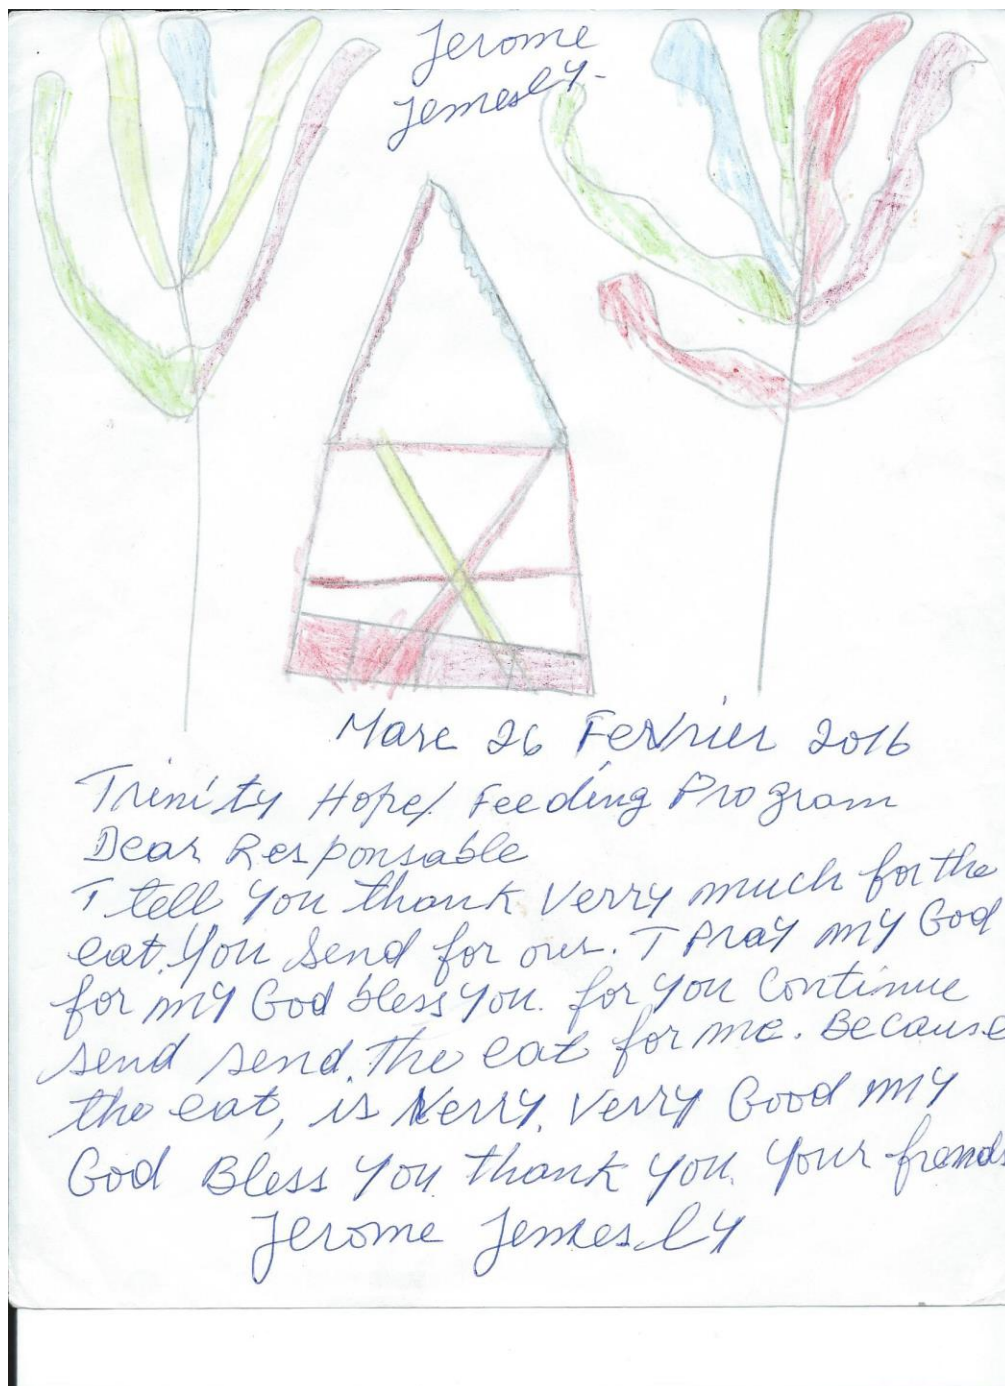 Jerome
Jemesly-
Mare 26 Fevrier 2016
Trinity Hope/ Feeding Program
Dear Responsable
I tell you thank verry much for the
eat. you send for our. I Pray my God
for my God bless you. for you Continue
send send. the eat for me. Because
the eat, is Verry. Verry Good my
God Bless you thank you. your frends
Jerome Jemesly